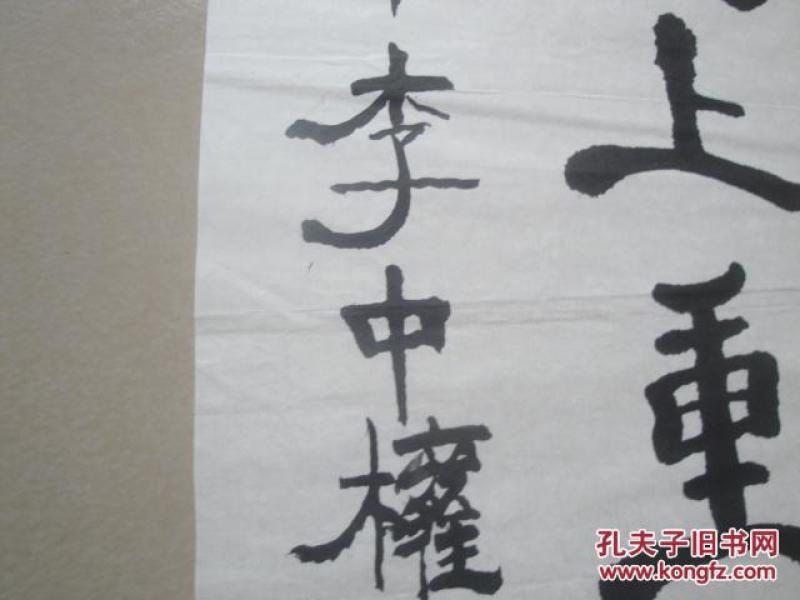 上重
李中權
孔夫子旧书网
www.kongfz.com